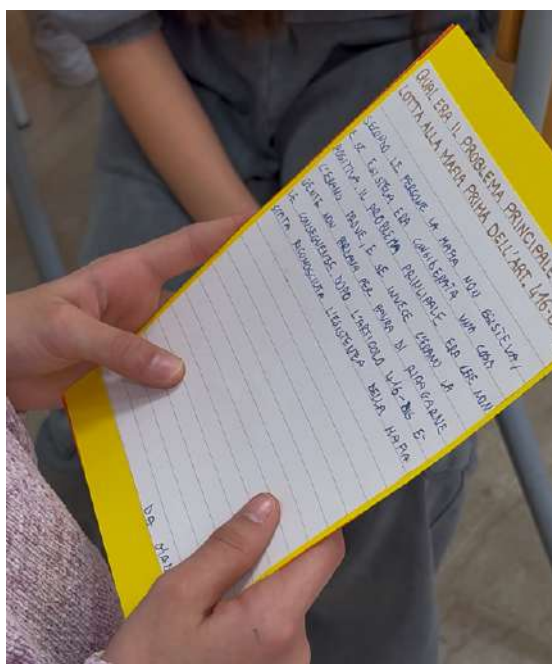 QUAL ERA IL PROBLEMA PRINCIPALE
LOTTA ALLA MAFIA PRIMA DELL'ART. 416-
SECONDO LE PERSONE LA MAFIA NON ESISTEVA,
E SE ESISTEVA ERA CONSIDERATA UNA COSA
POSITIVA. IL PROBLEMA PRINCIPALE ERA CHE NON
C'ERANO PROVE, E SE INVECE C'ERANO LA
GENTE NON PARLAVA PER PAURA DI RIPAGARNE
LE CONSEGUENZE. DOPO L'ARTICOLO 416-BIS E-
STATA RICONOSCIUTA L'ESISTENZA DELLA MAFIA.
DA